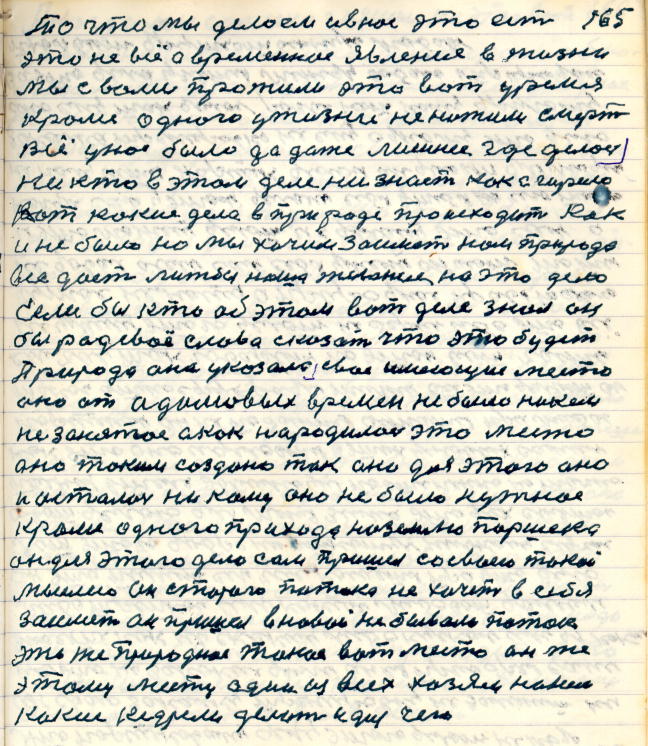 То что мы делоем ивное это ест 165
это не всё а временное явления в жизни
Мы с вами прожили это вот уремя
кроме одного у жизне не нажили смерт
всё уное было да даже лишнее где делос
ни кто в этом деле ни знает как с
вот какие дела в природе происходит Как
и не было но мы хочим занимат нам природа
все дает литбы наша желание на это дело
если бы кто об этом вот деле знал он
бы родевоё слова сказат что это будет
Природа она указала свое имеющие место
оно от адамовых времен не было никем
не занятое акок народилос это место
оно таким создано так оно для этого оно
и осталос ни кому оно не было нужное
кроме одного прихода на землю Паршека
он для этого дело сам пришел со своею такой
мыслию Он старого потока не хочет в себя
занимат он пришел в новой небывалы поток
эта же Природное такое вот место он же
этому месту один из всех хозяин
какие делат иду чего